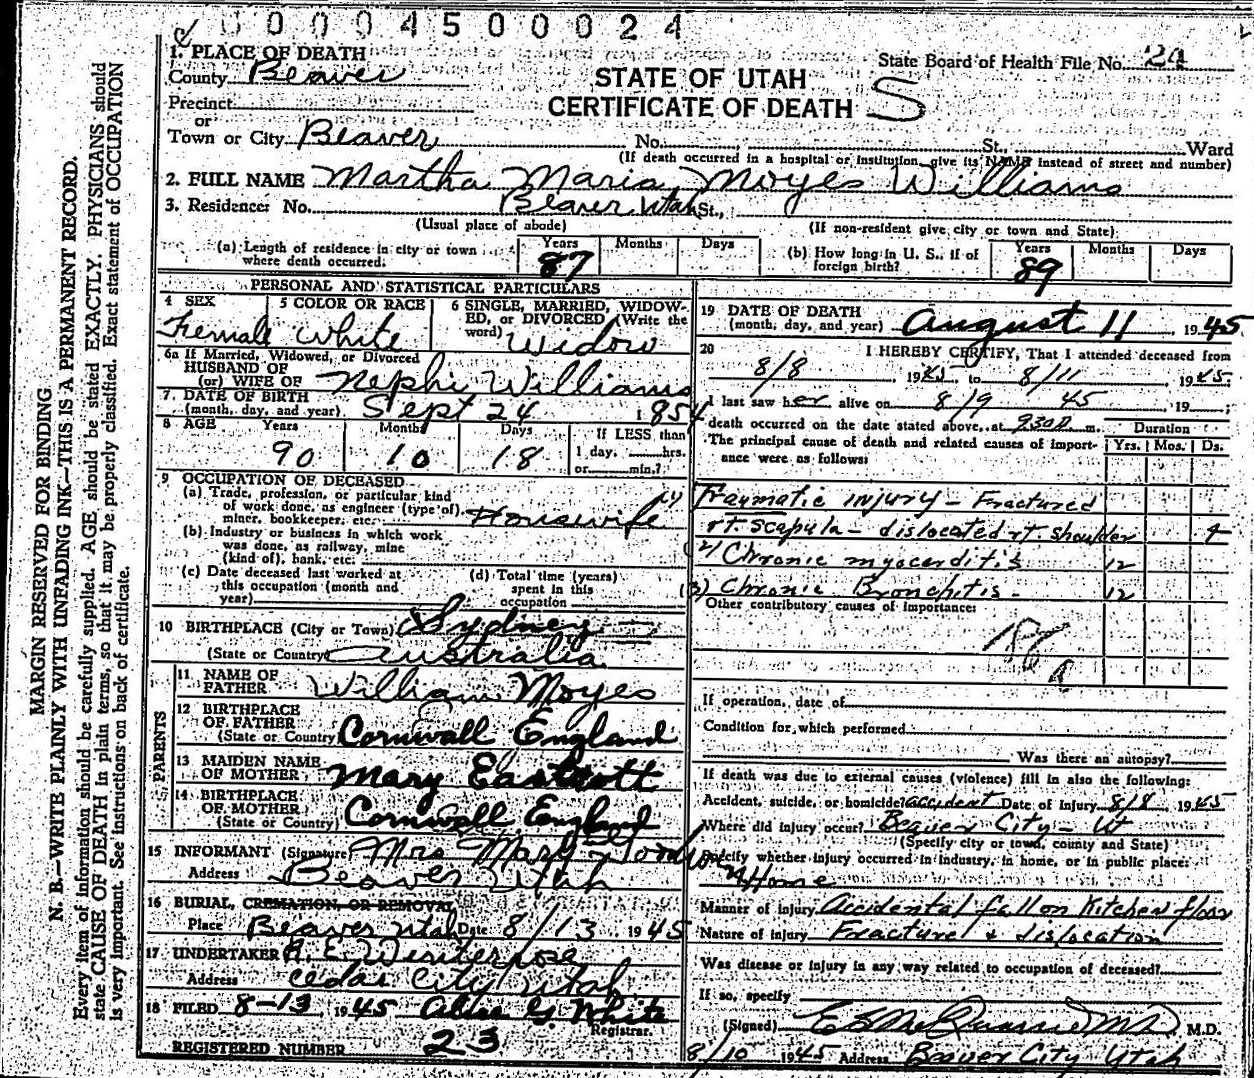 000450024
1. PLACE OF DEATH
County Beaver
State Board of Health File No. 24
STATE OF UTAH
CERTIFICATE OF DEATH S
Precinct
or
Town or City Beaver No. St., Ward
(If death occurred in a hospital or institution, give its NAME instead of street and number)
2. FULL NAME Martha Maria Moyes Williams
3. Residence: No. Beaver Utah St.,
(Usual place of abode) (If non-resident give city or town and State)
(a) Length of residence in city or town where death occurred: Years 87 Months Days
(b) How long in U. S., if of foreign birth? Years 89 Months Days
PERSONAL AND STATISTICAL PARTICULARS
4 SEX Female
5 COLOR OR RACE White
6 SINGLE, MARRIED, WIDOWED, or DIVORCED (Write the word) Widow
6a If Married, Widowed, or Divorced
HUSBAND OF
(or) WIFE OF Nephi Williams
7. DATE OF BIRTH
(month, day, and year) Sept 24 1854
8 AGE Years 90 Months 10 Days 18 If LESS than 1 day, hrs. or min.?
9 OCCUPATION OF DECEASED
(a) Trade, profession, or particular kind of work done, as engineer (type of), miner, bookkeeper, etc. Housewife
(b) Industry or business in which work was done, as railway, mine (kind of), bank, etc.
(c) Date deceased last worked at this occupation (month and year)
(d) Total time (years) spent in this occupation
10 BIRTHPLACE (City or Town) Sydney
(State or Country) Australia
PARENTS
11 NAME OF FATHER William Moyes
12 BIRTHPLACE OF FATHER
(State or Country) Cornwall England
13 MAIDEN NAME OF MOTHER Mary Eastcott
14 BIRTHPLACE OF MOTHER
(State or Country) Cornwall England
15 INFORMANT (Signature) Mrs Mary
Address Beaver Utah
16 BURIAL, CREMATION, OR REMOVAL
Place Beaver Utah Date 8/13 1945
17 UNDERTAKER
Address Cedar City Utah
18 FILED 8-13 1945 G. White
Registrar.
REGISTERED NUMBER 23
19 DATE OF DEATH
(month, day, and year) August 11 1945
20 I HEREBY CERTIFY, That I attended deceased from
8/8 1945 to 8/11 1945
I last saw her alive on 8/9 45, 19 ;
death occurred on the date stated above, at m.
The principal cause of death and related causes of importance were as follows:
Duration
Yrs. Mos. Ds.
1) Traumatic injury - Fractured
rt. scapula - dislocated rt. shoulder 4
(2) Chronic myocarditis 12
(3) Chronic Bronchitis - 12
Other contributory causes of importance:
If operation, date of
Condition for which performed
Was there an autopsy?
If death was due to external causes (violence) fill in also the following:
Accident, suicide, or homicide? accident Date of injury 8/8 1945
Where did injury occur? Beaver City - Ut
(Specify city or town, county and State)
Specify whether injury occurred in industry, in home, or in public place:
Home
Manner of injury Accidental fall on Kitchen floor
Nature of injury Fracture & dislocation
Was disease or injury in any way related to occupation of deceased?
If so, specify
(Signed) M.D. M.D.
8/10 1945 Address Beaver City Utah
MARGIN RESERVED FOR BINDING
N. B.—WRITE PLAINLY WITH UNFADING INK—THIS IS A PERMANENT RECORD.
Every item of information should be carefully supplied. AGE should be stated EXACTLY. PHYSICIANS should
state CAUSE OF DEATH in plain terms, so that it may be properly classified. Exact statement of OCCUPATION
is very important. See instructions on back of certificate.